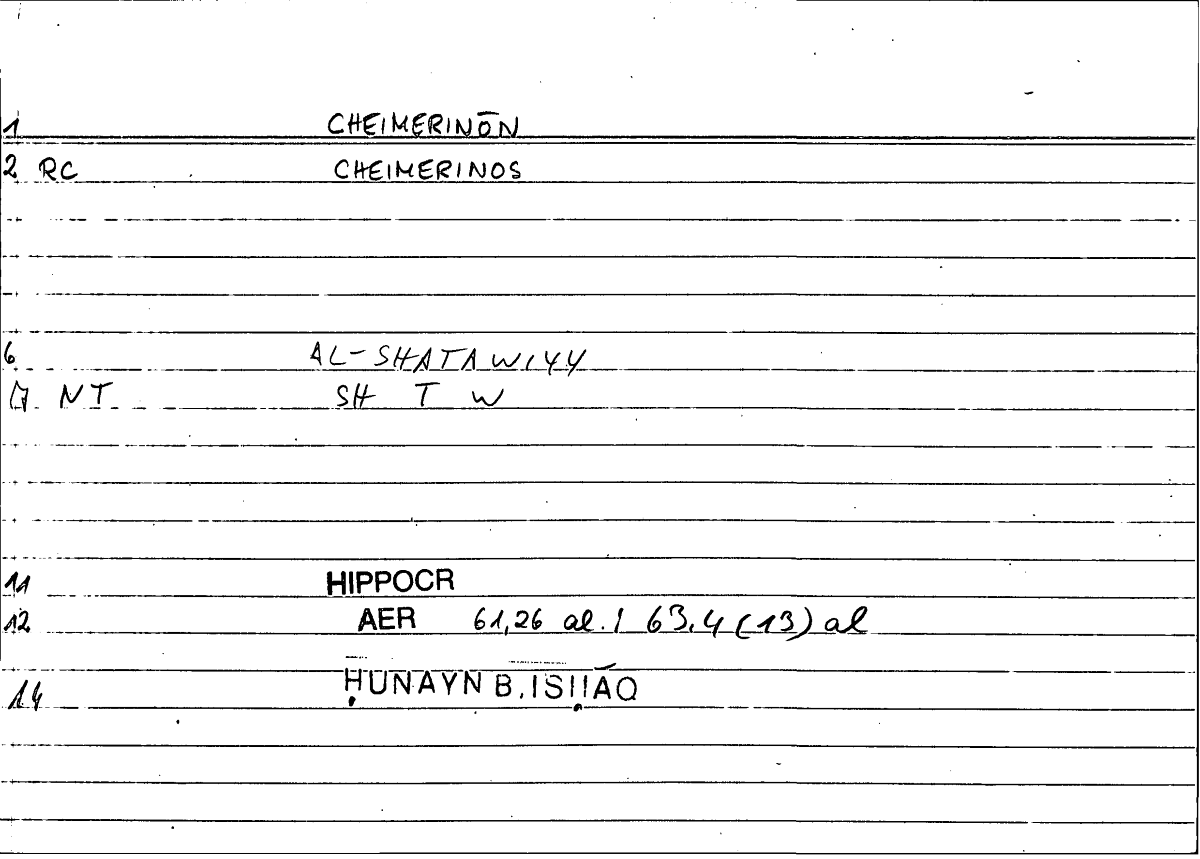 1 CHEIMERINŌN
2 RC CHEIMERINOS
6 AL-SHATAWIYY
7 NT SH T W
11 HIPPOCR
12 AER 61,26 al. / 63,4 (13) al
14 ḤUNAYN B. ISḤĀQ